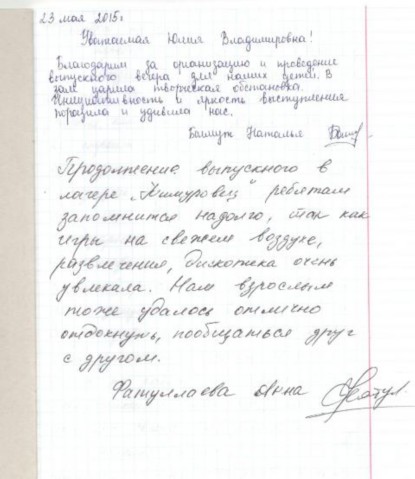 23 мая 2015г
Уважаемая Юлия Владимировна!
Благодарим за организацию и проведение
выпускного вечера для наших детей. В
зале царила творческая обстановка.
Инициативность и яркость выступления
поразила и удивила нас.
Наталья
Продолжение выпускного в
лагере „Кимуровец" ребятам
запомнится надолго, так как
игры на свежем воздухе,
развлечения, дискотека очень
увлекала. Нам взрослым
тоже удалось отлично
отдохнуть, пообщаться друг
с другом.
Фатуллаева Анна